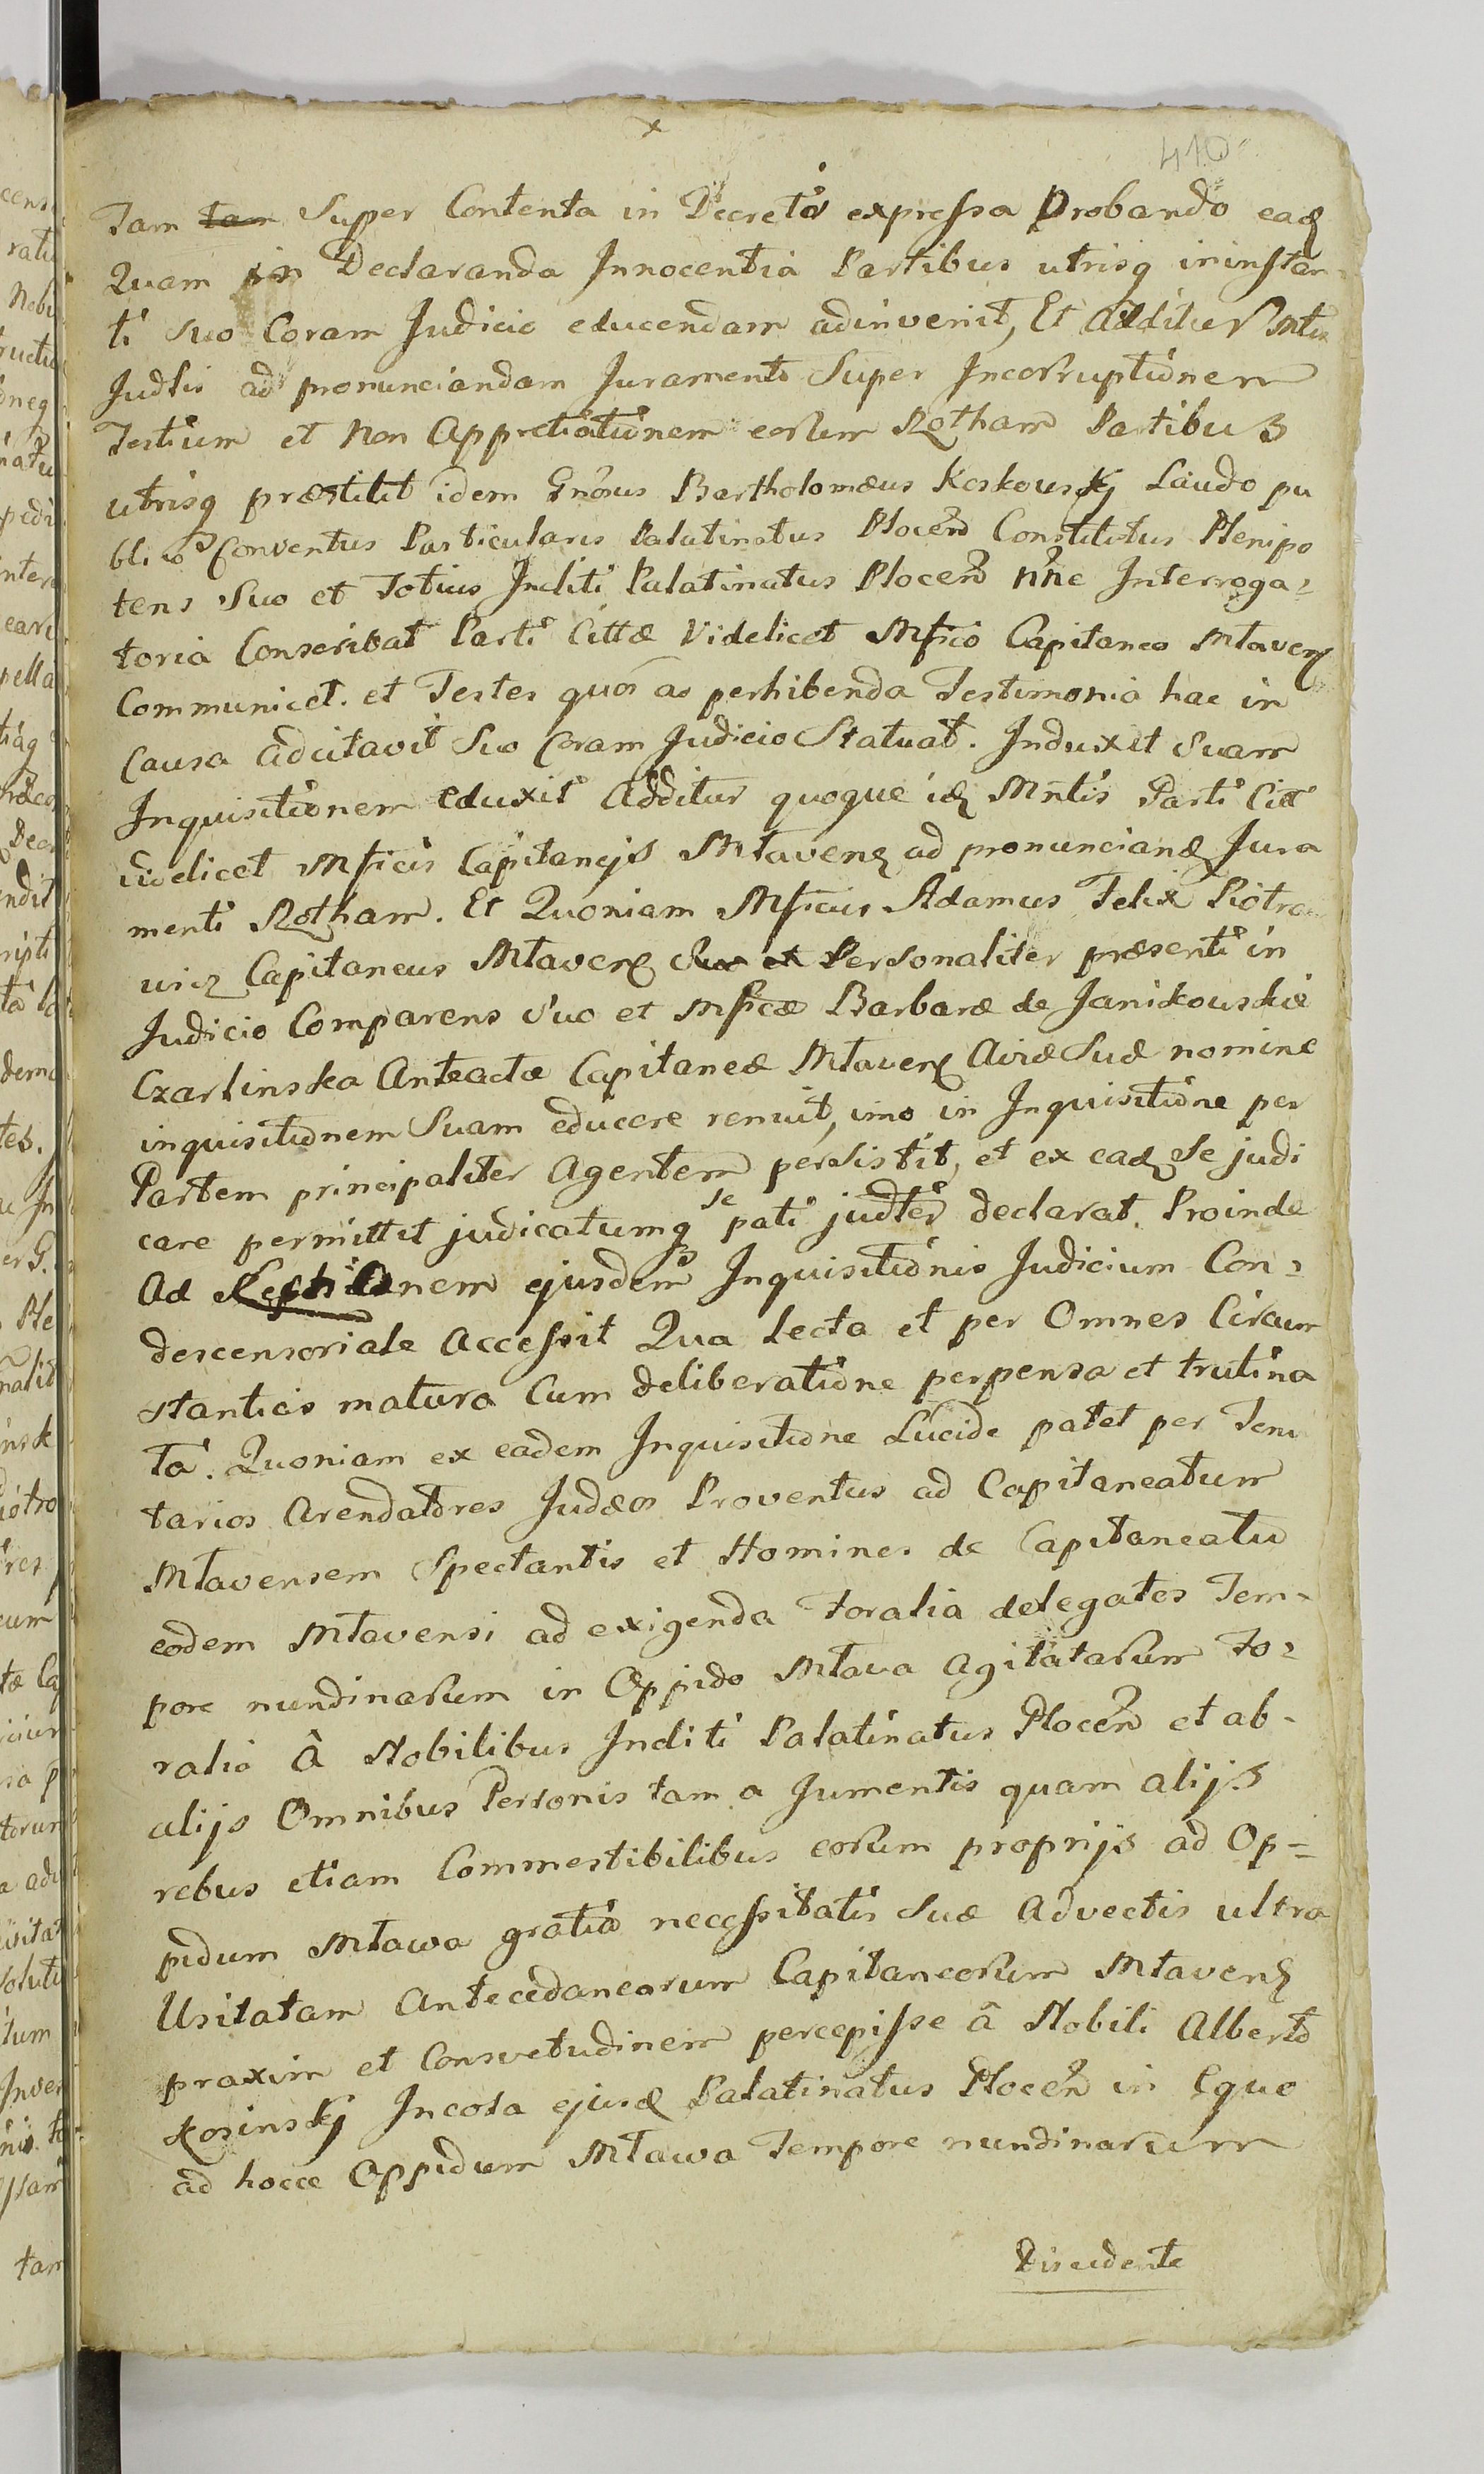 410
Tam tam Super Contenta in Decreto expressa Probando eadꝫ
Quam in Declaranda Innocentia Partibus utrisq ininstan-
ti Suo Coram Judicio educendam adinvenit, Et Additus Mntis
Judtis ad pronunciandam Juramenti Super Incorruptionem
Testium et Non Appretiationem eorum Rotham Partibus
utrisq præstitit idem Gnosus Bartholomæus Koskowskj Laudo pu
blico Conventus Particularis Palatinatus Plocen Constitutus Plenipo
tens Suo et Totius Incliti Palatinatus Plocen nne Interroga-
toria Conscribat Parti Cittæ Videlicet Mfico Capitaneo Mlavenꝫ
Communicet. et Testes quos ad perhibenda Testimonia hac in
Causa adcitavit Suo Coram Judicio Statuat. Induxit Suam
Inquisitionem eduxit Additur quoque idꝫ Mntis Parti Citt
videlicet Mficis Capitaneis Mlavenꝫ ad pronunciandꝫ Jura
menti Rotham. Et Quoniam Mficus Adamus Felix Piotro
wicz Capitaneus Mlavenꝫ Suo et Personaliter præsenti in
Judicio Comparens Suo et Mficæ Barbaræ de Janikowskie
Czarlinska Anteactæ Capitaneæ Mlavenꝫ Aviæ Suæ nomine
inquisitionem Suam educere renuit, imo in Inquisitione per
Partem principaliter Agentem persistit, et ex eadꝫ Se judi
care permittit judicatumq se pati judter declarat. Proinde
Ad Lectionem ejusdem Inquisitionis Judicium Con-
descensoriale Accessit Qua Lecta et per Omnes Circum
stantias matura Cum deliberatione perpensa et trutina
ta. Quoniam ex eadem Inquisitione Lucide patet per Tenu
tarios Arendatores Judæos Proventus ad Capitaneatum
Mlavensem Spectantis et Homines de Capitaneatu
eodem Mlavensi ad exigenda Foralia delegatos Tem-
pore nundinarum in Oppido Mlava Agitatarum Fo-
ralia â Nobilibus Incliti Palatinatus Plocen et ab-
alijs Omnibus Personis tam a Jumentis quam alijs
rebus etiam Commestibilibus eorum proprijs ad Op-
pidum Mlawa gratia necessitatis Suæ Advectis ultra
Usitatam Antecedaneorum Capitaneorum Mlavenꝫ
praxim et Consvetudinem percepisse â Nobili Alberto
Kosinskj Incola ejusdꝫ Palatinatus Plocen in Equo
ad hocce Oppidum Mlawa Tempore nundinarum